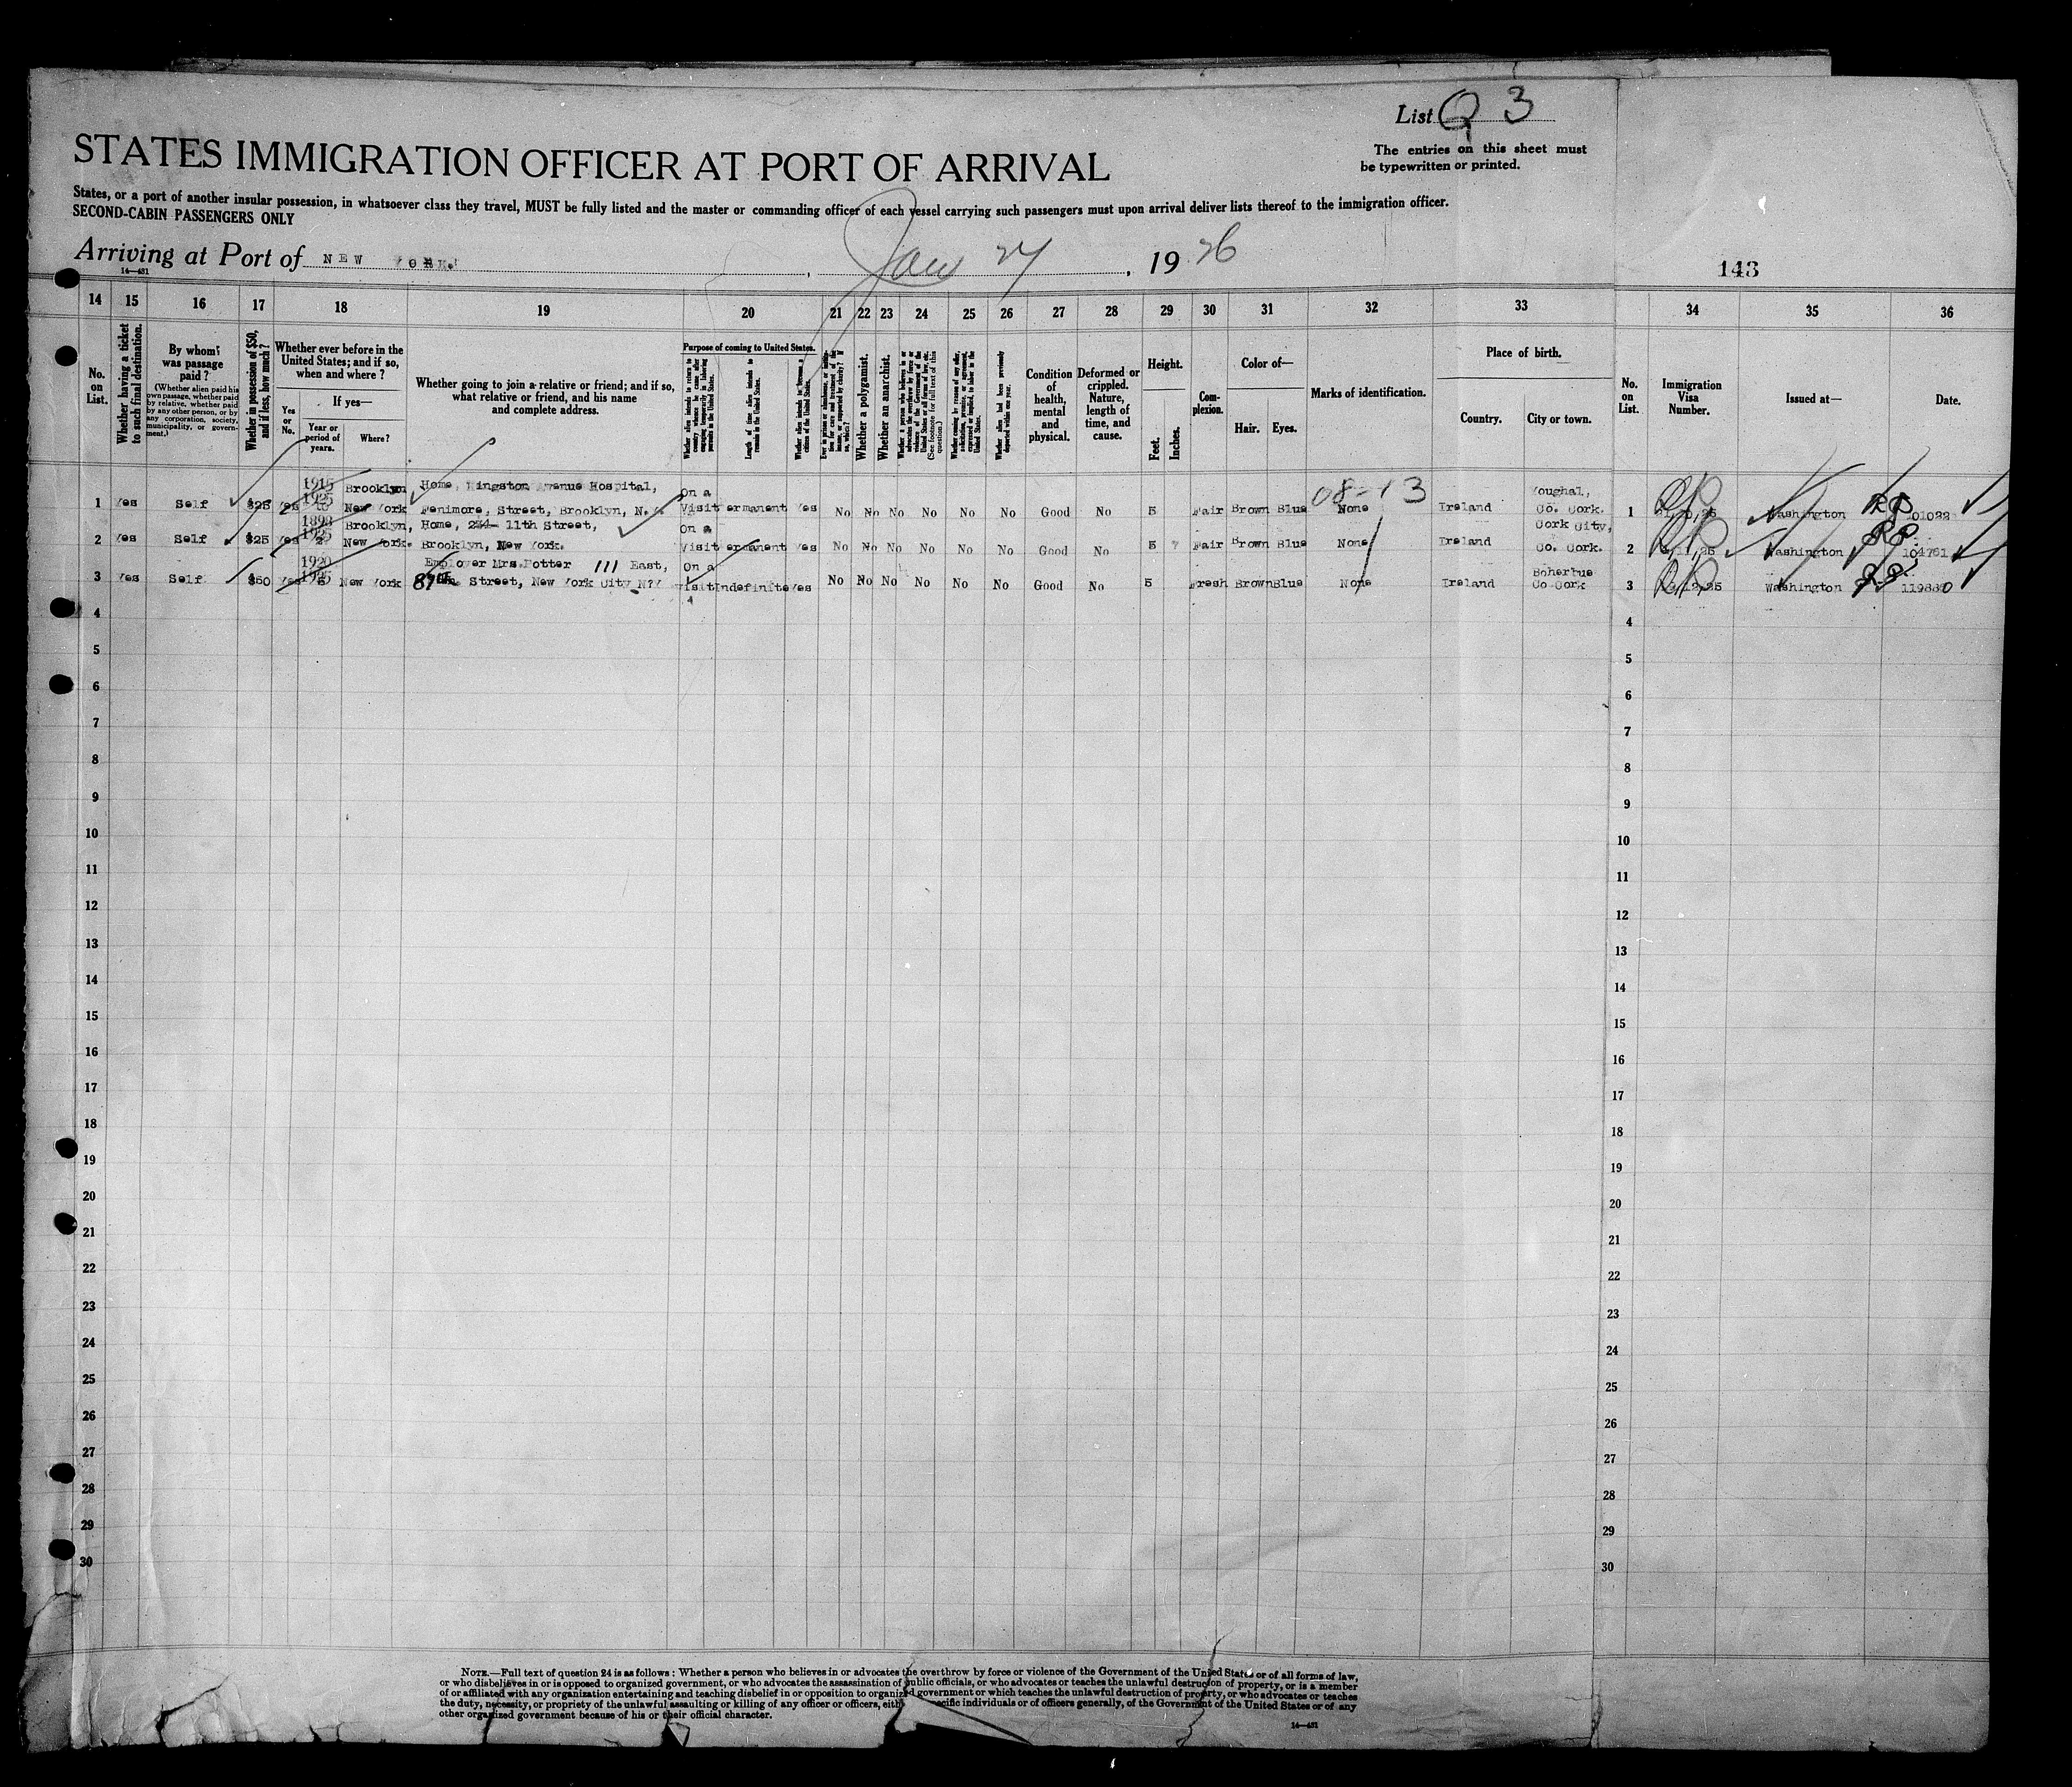 List Q 3
The entries on this sheet must
be typewritten or printed.
STATES IMMIGRATION OFFICER AT PORT OF ARRIVAL
States, or a port of another insular possession, in whatsoever class they travel, MUST be fully listed and the master or commanding officer of each vessel carrying such passengers must upon arrival deliver lists thereof to the immigration officer.
SECOND-CABIN PASSENGERS ONLY
Arriving at Port of NEW YORK. , Jan 27 , 1926
14—431
143
14 15 16 17 18 19 20 21 22 23 24 25 26 27 28 29 30 31 32 33 34 35 36
No. on List.
Whether having a ticket to such final destination.
By whom was passage paid?
(Whether alien paid his own passage, whether paid by relative, whether paid by any other person, or by any corporation, society, municipality, or government.)
Whether in possession of $50, and if less, how much?
Whether ever before in the United States; and if so, when and where?
Yes or No.
If yes—
Year or period of years.
Where?
Whether going to join a relative or friend; and if so, what relative or friend, and his name and complete address.
Purpose of coming to United States.
Length of time alien intends to remain in the United States.
Whether a polygamist.
Whether an anarchist.
Condition of health, mental and physical.
Deformed or crippled. Nature, length of time, and cause.
Height.
Feet.
Inches.
Complexion.
Color of—
Hair. Eyes.
Marks of identification.
Place of birth.
Country.
City or town.
No. on List.
Immigration Visa Number.
Issued at—
Date.
08-13
1915 Brooklyn Home, Kingston Avenue Hospital, On a Youghal,
1 Yes Self $25 Yes 1925 New York Fenimore, Street, Brooklyn, N.Y. Visit Permanent Yes No No No No No No Good No 5 Fair Brown Blue None Ireland Co. Cork. 1 Washington
1898 Brooklyn, Home, 234- 11th Street, On a Cork City,
2 Yes Self $25 Yes 1925 New York. Brooklyn, New York. Visit Permanent Yes No No No No No No Good No 5 7 Fair Brown Blue None Ireland Co. Cork. 2 Washington 104761
1920 Employer Mrs.Potter 111 East, On a Boherbue
3 Yes Self $50 Yes 1925 New York 87th Street, New York City N?Y Visit Indefinite Yes No No No No No No Good No 5 Fresh Brown Blue None Ireland Co Cork 3 Washington 119880
4 4
5 5
6 6
7 7
8 8
9 9
10 10
11 11
12 12
13 13
14 14
15 15
16 16
17 17
18 18
19 19
20 20
21 21
22 22
23 23
24 24
25 25
26 26
27 27
28 28
29 29
30 30
NOTE.—Full text of question 24 is as follows: Whether a person who believes in or advocates the overthrow by force or violence of the Government of the United States or of all forms of law,
or who disbelieves in or is opposed to organized government, or who advocates the assassination of public officials, or who advocates or teaches the unlawful destruction of property, or is a member
of or affiliated with any organization entertaining and teaching disbelief in or opposition to organized government or which teaches the unlawful destruction of property, or who advocates or teaches
the duty, necessity, or propriety of the unlawful assaulting or killing of any officer or officers, either specific individuals or of officers generally, of the Government of the United States or of any
other organized government because of his or their official character.
14—431